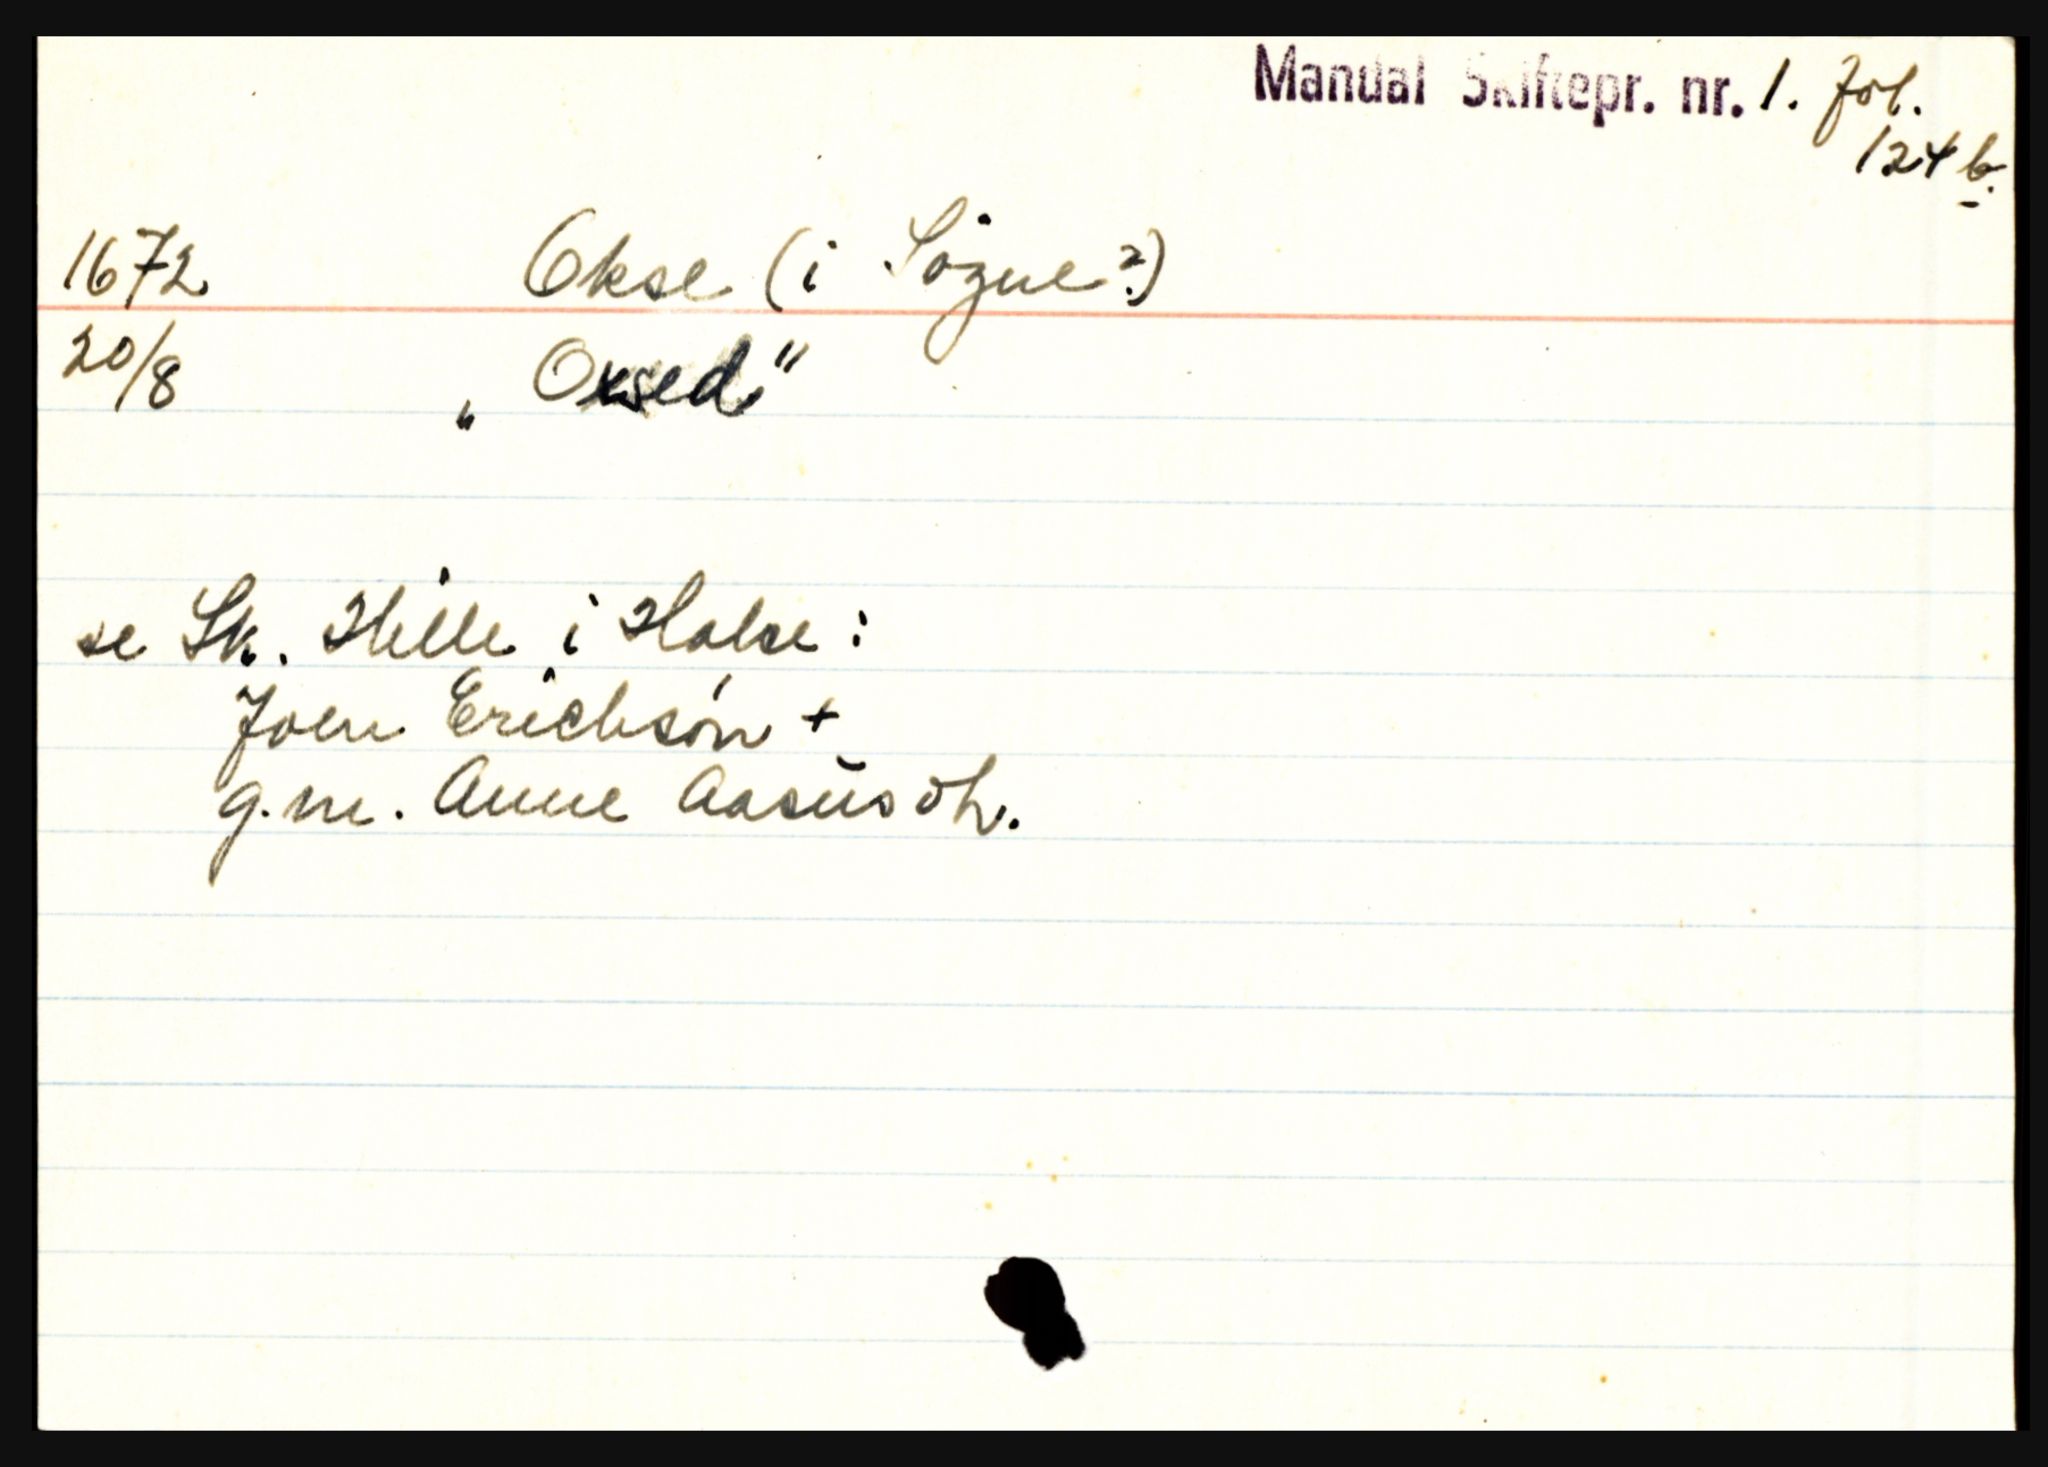 Mandal Skiftepr. nr. 1. fol.
124 b.
1672 Okse (i Søgne?)
20/8 „Oksed"
se Sk. Hille i Halse:
Joen Erichsøn +
g.m. Anne Aasŭsdtr.